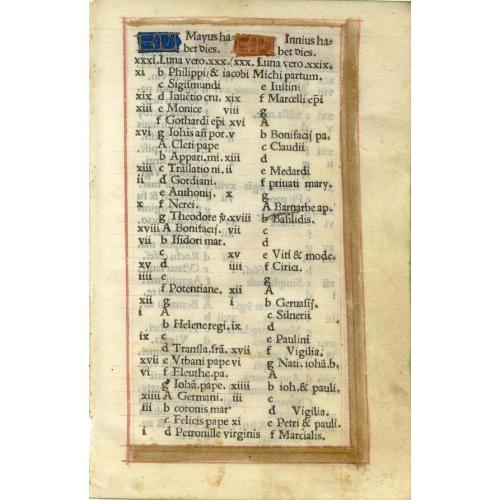 KL Mayus ha-
bet dies.
xxxi. Luna vero. xxx.
xi b Philippi & iacobi
c Sigismundi
xix d Inuētio cru.
xiii e Monice
f Gothardi epī
xvi g Iohis añ por.
A Cleti pape
b Appari. mi.
xiii c Trāslatio ni.
ii d Gordiani.
e Anthonij.
x f Nerei.
g Theodore
xviii A Bonifacij.
vii b Isidori mar.
c
xv d
iiii e
f Potentiane.
xii g
i A
b Helene regi.
ix c
d Transla. frā.
xvii e Vrbani pape
vi f Eleuthe. pa.
g Iohā. pape.
xiiii A Germani.
iii b coronis mar
c Felicis pape
i d Petronille virginis
KL Innius ha-
bet dies.
xxx. Luna vero. xxix.
Michi partum.
e Iustini
xix f Marcelli epī
viii g
xvi A
v b Bonifacij pa.
c Claudii
xiii d
ii e Medardi
f priuati mary.
x g
A Barnarbe ap.
xviii b Basilidis.
vii c
d
xv e Viti & mode.
iiii f Cirici.
g
xii A
i b Geruasij.
c Silnerii
ix d
e Paulini
xvii f Vigilia.
vi g Nati. iohā. b.
A
xiiii b ioh. & pauli.
iii c
d Vigilia.
xi e Petri & pauli.
f Marcialis.